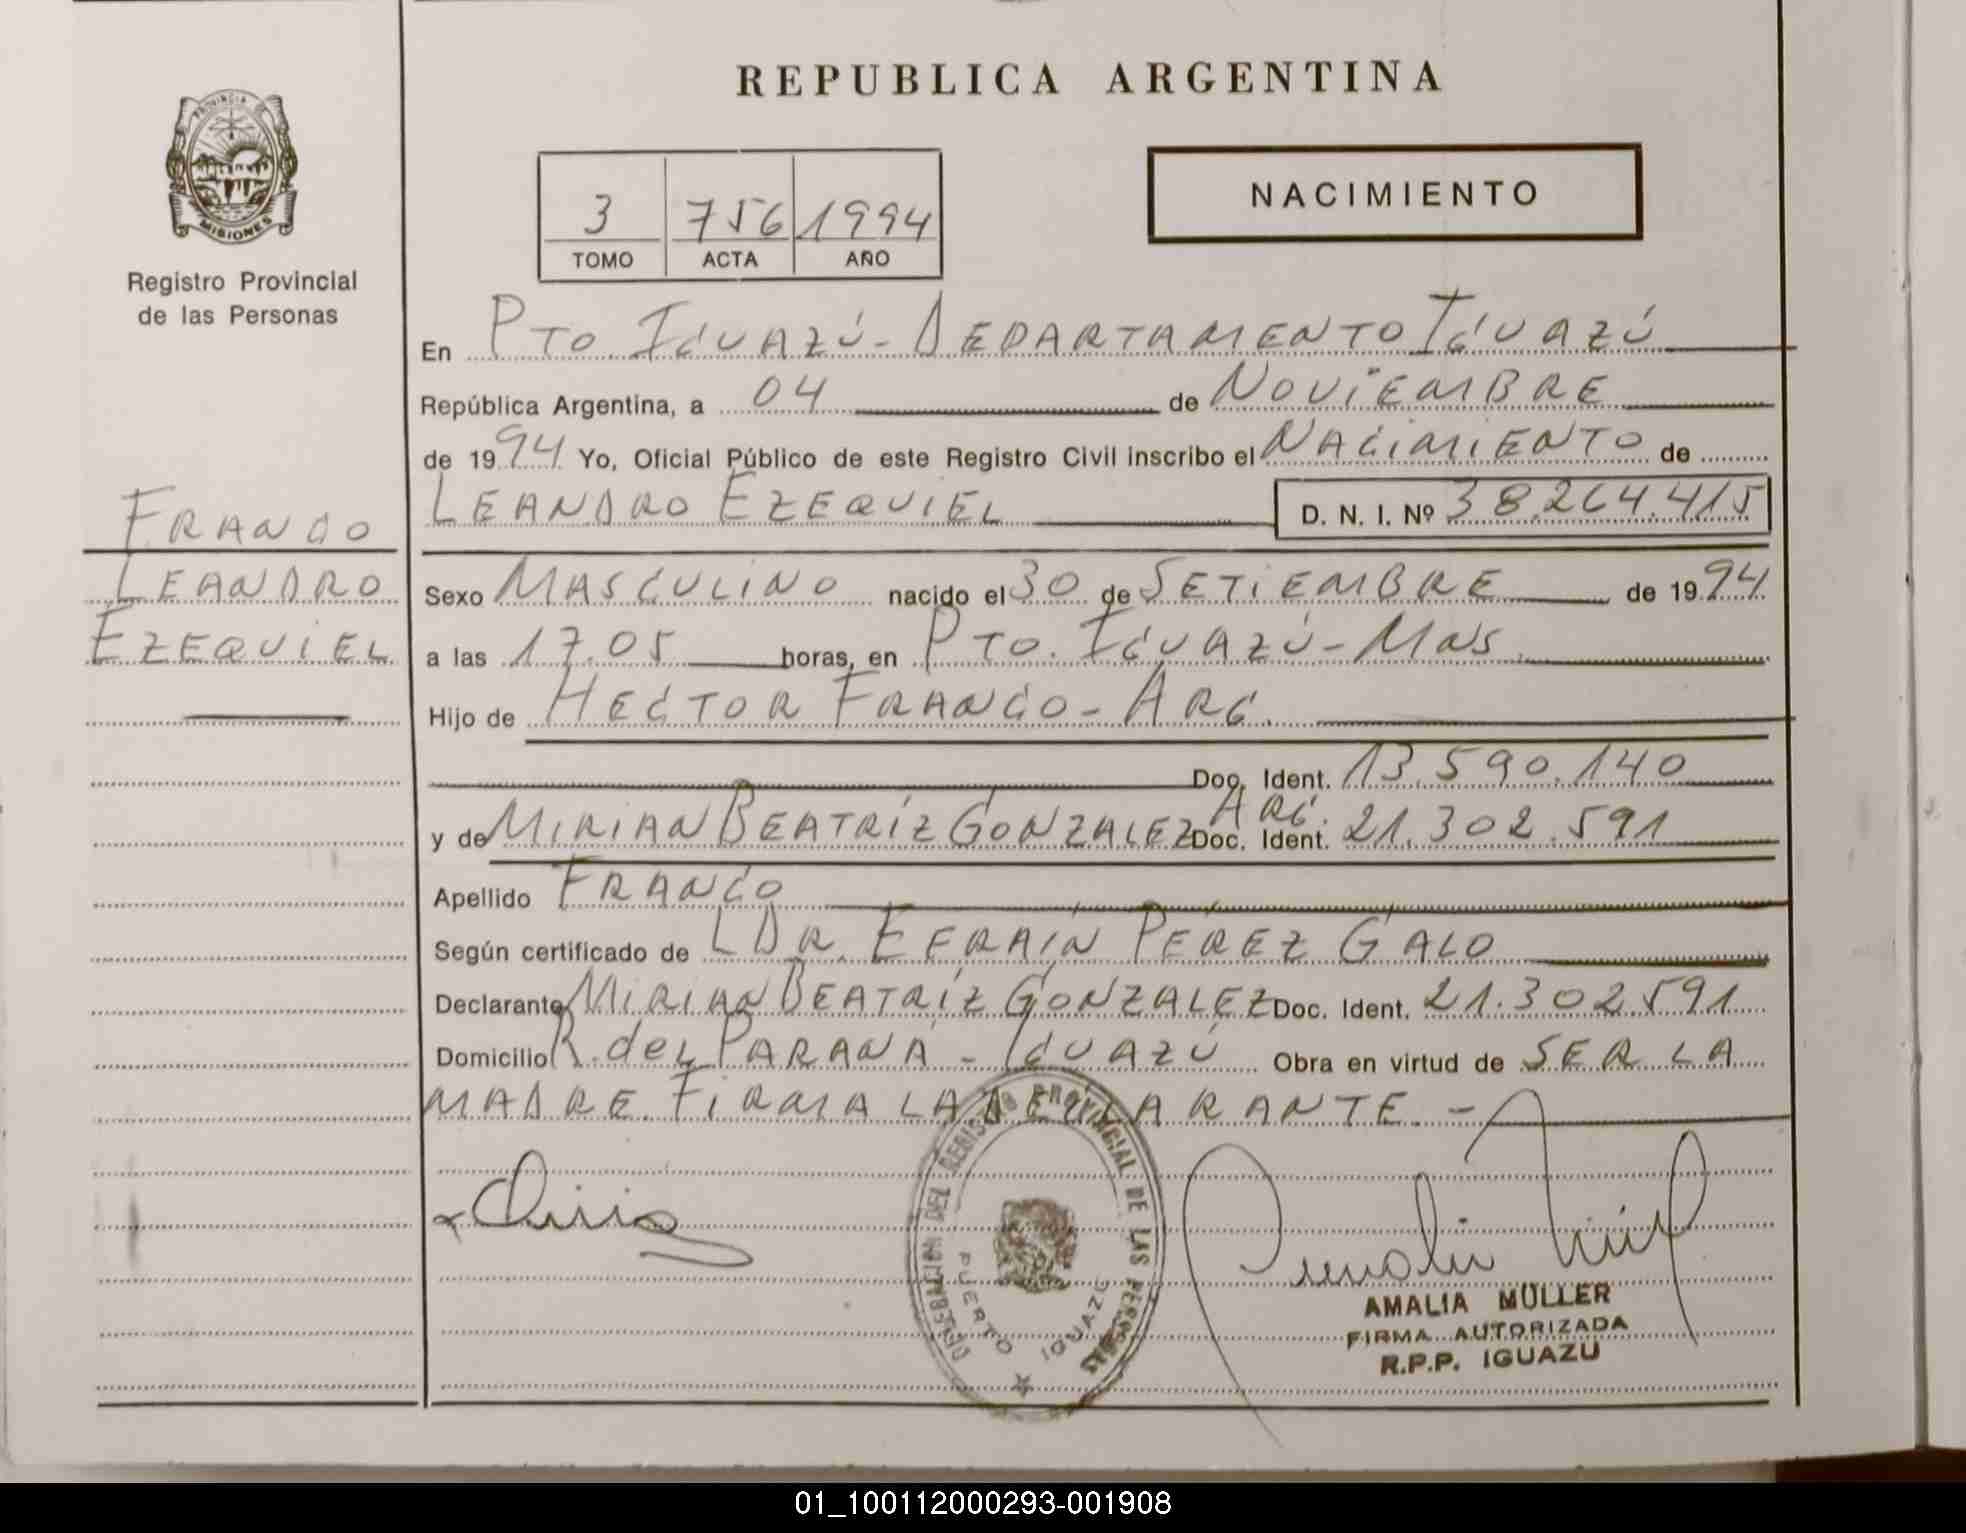 REPUBLICA ARGENTINA
PROVINCIA DE
MISIONES
Registro Provincial
de las Personas
NACIMIENTO
3 756 1994
TOMO ACTA AÑO
En Pto. Iguazú - Departamento Iguazú
República Argentina, a 04 de Noviembre
de 1994 Yo, Oficial Público de este Registro Civil inscribo el Nacimiento de
Leandro Ezequiel D. N. I. Nº 38.264.415
Franco
Leandro
Ezequiel
Sexo Masculino nacido el 30 de Setiembre de 1994
a las 17.05 horas, en Pto. Iguazú - Mns.
Hijo de Hector Franco - Arg.
Doc. Ident. 13.590.140
y de Mirian Beatríz Gonzalez Arg. Doc. Ident. 21.302.591
Apellido Franco
Según certificado de L Dr. Efraín Pérez Galo
Declarante Mirian Beatríz Gonzalez Doc. Ident. 21.302.591
Domicilio R. del Paraná - Iguazú Obra en virtud de ser la
madre. Firma la declarante. -
DELEGACION DEL REGISTRO PROVINCIAL DE LAS PERSONAS
PUERTO IGUAZU
AMALIA MÜLLER
FIRMA AUTORIZADA
R.P.P. IGUAZU
01_100112000293-001908